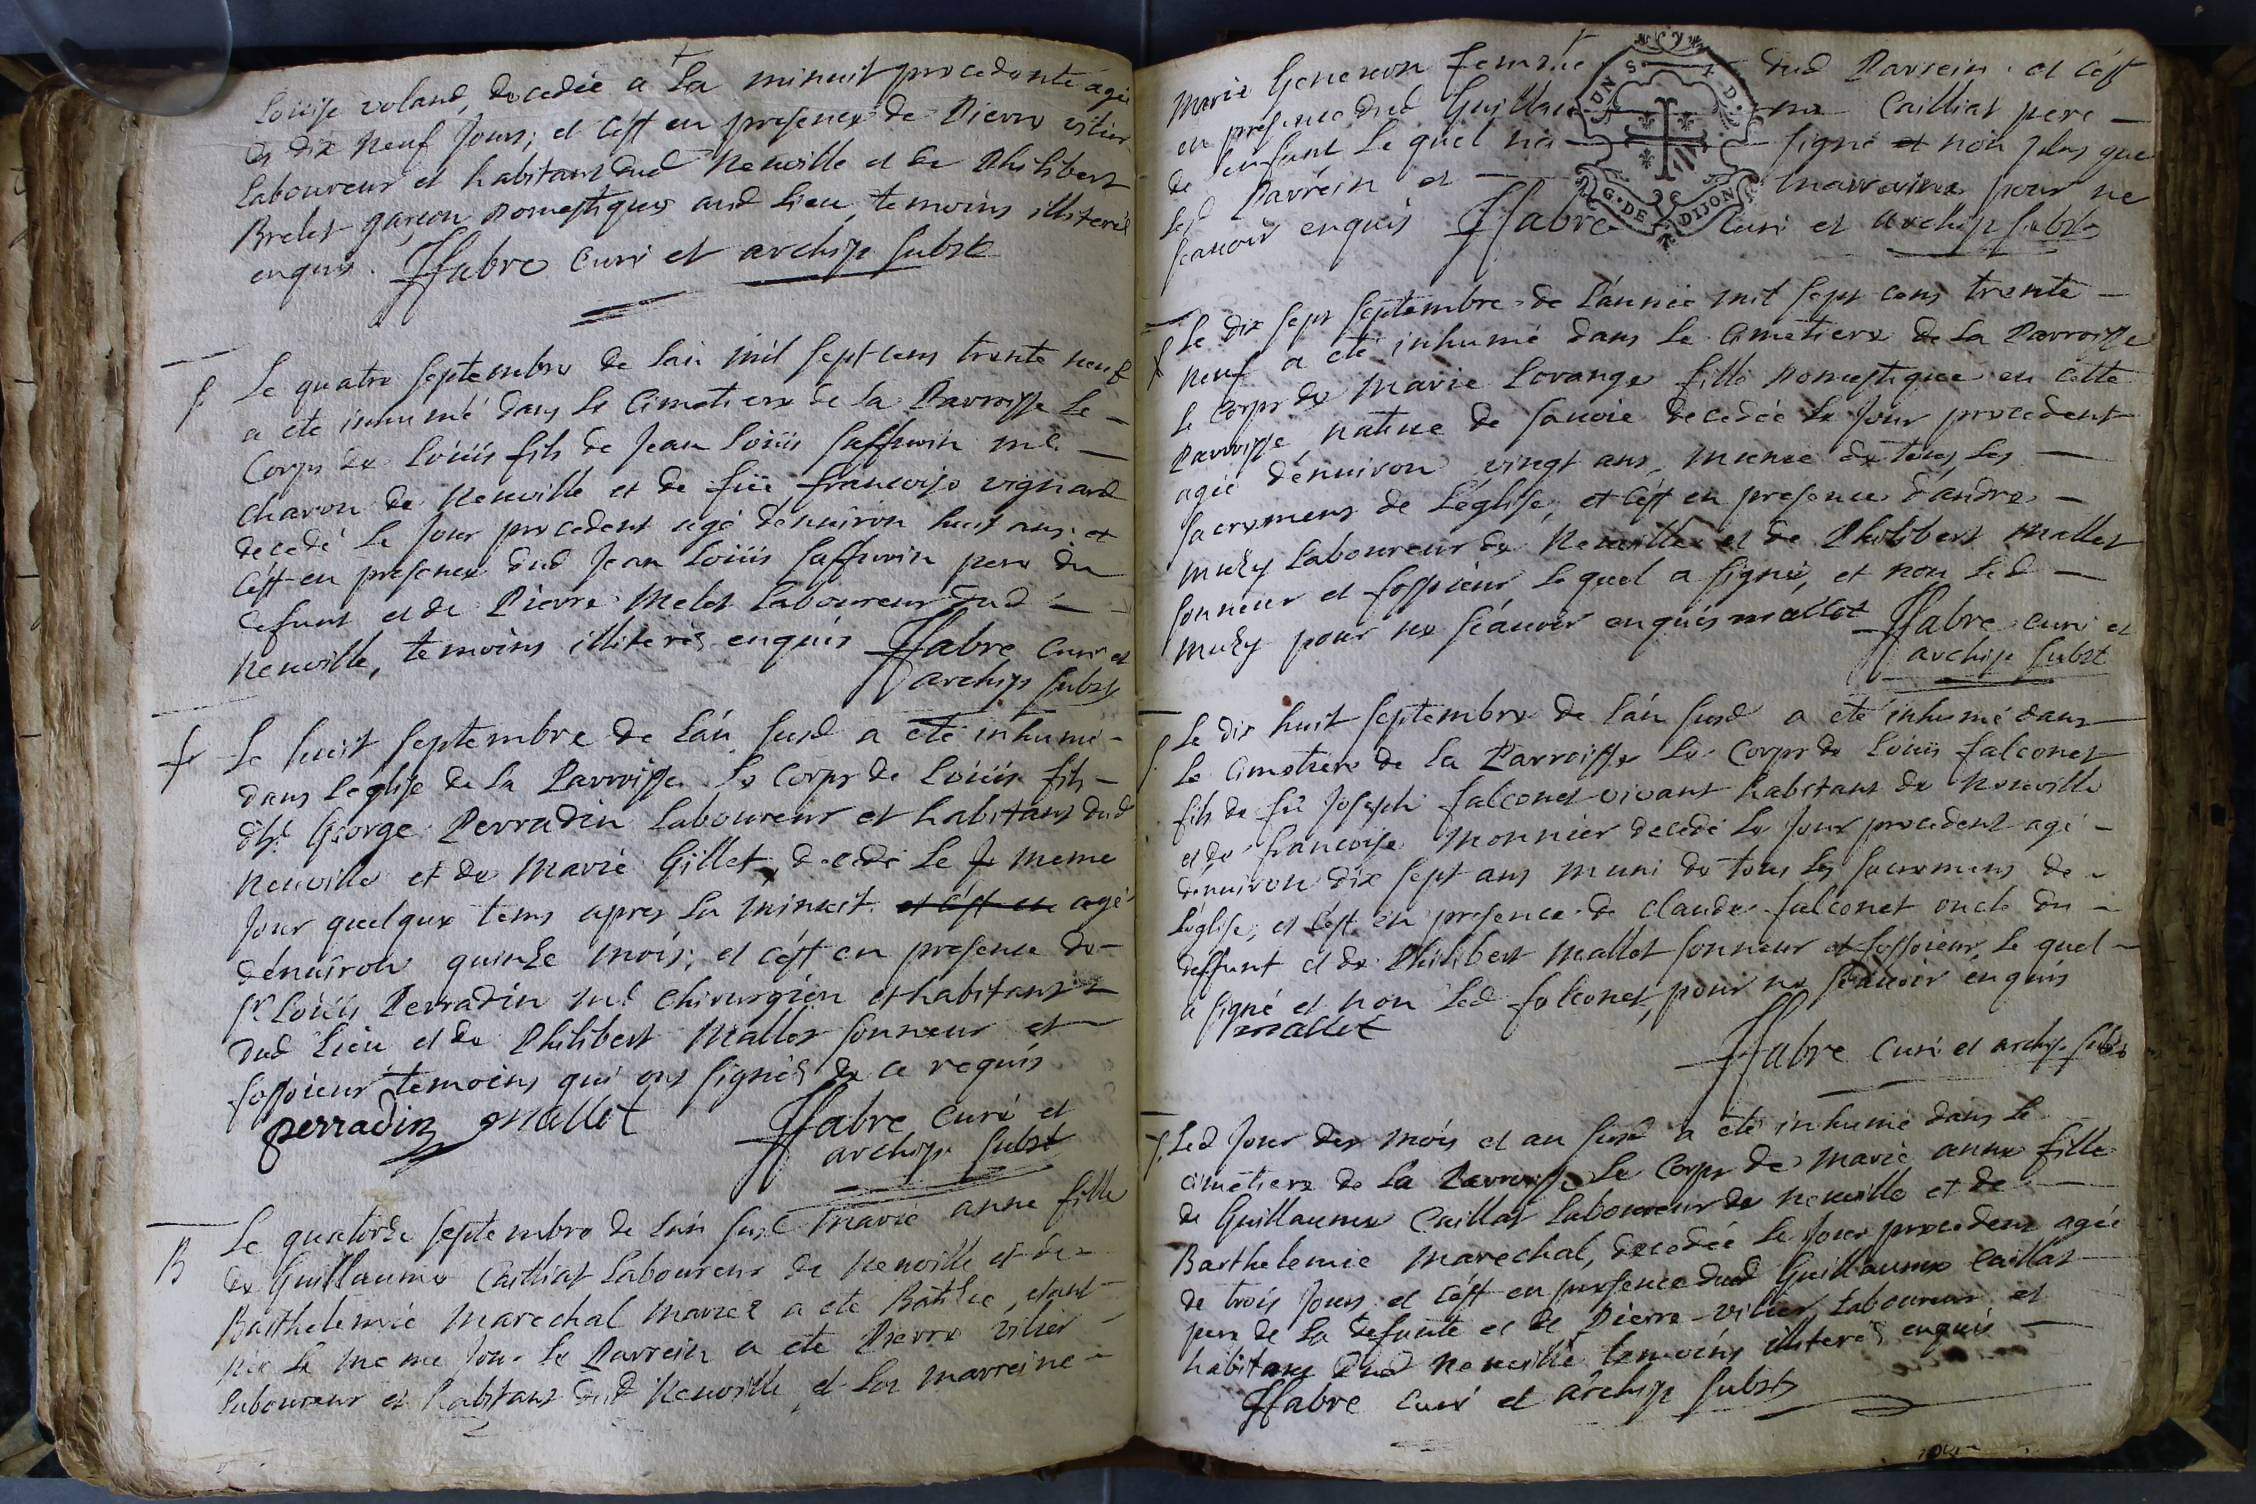 Loüise voland, decedée a La minuit precedente agée
de dix neuf Jours; et c'est en presence de Pierre vitier
Laboureur et habitant dud Neuville et de Philibert
Brelet garçon domestique aud Lieu, temoins illiterés
enquis. FFabre Curé et archip substs
f. Le quatre septembre de L'an mil sept cens trente neuf
a ete inhumé dans Le Cimetiere de la Parroisse Le —
Corps de Loüis fils de Jean Loüis Saffurin me. —
charon de Neuville et de füe francoise vignard
decedé Le Jour precedent agé d'environ huit ans, et
C'est en presence dud Jean Loüis Saffurin pere du
defunt et de Pierre Melet Laboureur dud —
Neuville, temoins illiterés enquis FFabre Curé et
archip substs
f Le huit septembre de L'an susd a ete inhumé -
dans L'eglise de la Parroisse Le Corps de Loüis fils -
d'h. George Perradin Laboureur et habitant dud
Neuville et de Marie Gillet, decedé Le J meme
Jour quelque tems apres La minuit. et c'est en agé
d'environ quinze mois; et c'est en presence de -
Sr. Loüis Perradin me Chirurgien et habitant -
dud Lieu et de Philibert Mallet sonneur et —
fossoieur temoins qui ont signés de ce requis
perradin Mallet FFabre Curé et
archip substs
B Le quatorze septembre de L'an susd Marie anne fille
de Guillaume Cailliat Laboureur de Neuville et de -
Barthelemie Marechal Mariez a ete Batisée, etant -
née Le meme Jour Le Parrein a ete Pierre vitier -
Laboureur et habitant dud Neuville et La marreine -
Marie Genevon femme dud Parrein. et c'est
en presence dud Guillaume Cailliat pere —
de L'enfant Le quel n'a signé et non plus que
Les Parrein et marreine pour ne
scavoir enquis FFabre Curé et archip substs
UNS. G. DE DIJON
f Le dix sept septembre de L'année mil sept cens trente —
neuf a ete inhumé dans Le Cimetiere de La Parroisse
Le Corps de Marie Lorange fille domestique en cette
Parroisse, native de savoie decedée Le Jour precedent
agée d'environ vingt ans, munie de tous les —
sacremens de L'eglise, et c'est en presence d'andre —
muzy Laboureur de Neuville et de Philibert Mallet
sonneur et fossoieur Le quel a signé, et non Led —
muzy pour ne scavoir enquis mallet FFabre Curé et
archip subst
f. Le dix huit septembre de L'an susd a ete inhumé dans
Le Cimetiere de La Parroisse Le Corps de Loüis falconet
fils de fû Joseph falconet vivant habitant de Neuville
et de francoise Monnier decedé Le Jour precedent agé -
d'environ dix sept ans muni de tous Les sacremens de -
L'eglise, et c'est en presence de Claude falconet oncle du -
deffunt et de Philibert Mallet sonneur et fossoieur, Le quel -
a signé et non Led falconet, pour ne scavoir enquis
mallet
FFabre Curé et archip substs
f. Led Jour des mois et an susd a ete inhumé dans Le
Cimetiere de La Parroisse Le Corps de Marie anne fille
de Guillaume Caillat Laboureur de Neuville et de
Barthelemie Marechal, decedée Le Jour precedent agée
de trois Jours, et c'est en presence dud Guillaume Caillat —
pere de La defunte et de Pierre vitier Laboureur et
habitant dud Neuville temoins illiterés enquis —
FFabre Curé et archip substs